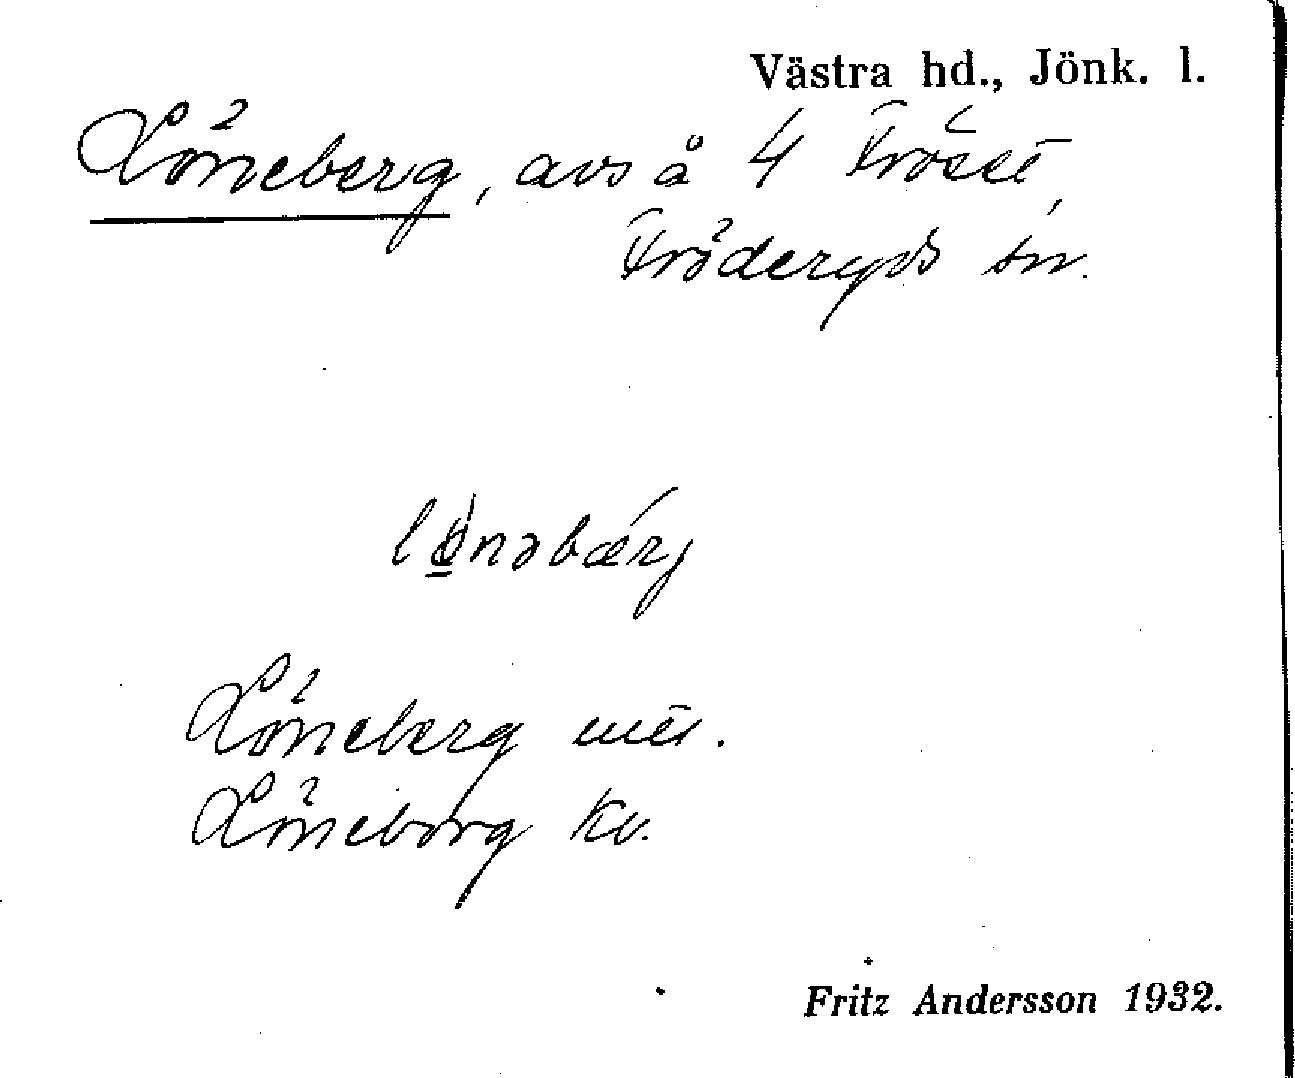 Västra hd., Jönk. l.
Löneberg, avs å 4
Fröderyds sn.
lø̱nəbærj
Löneberg
Löneborg Kv.
Fritz Andersson 1932.